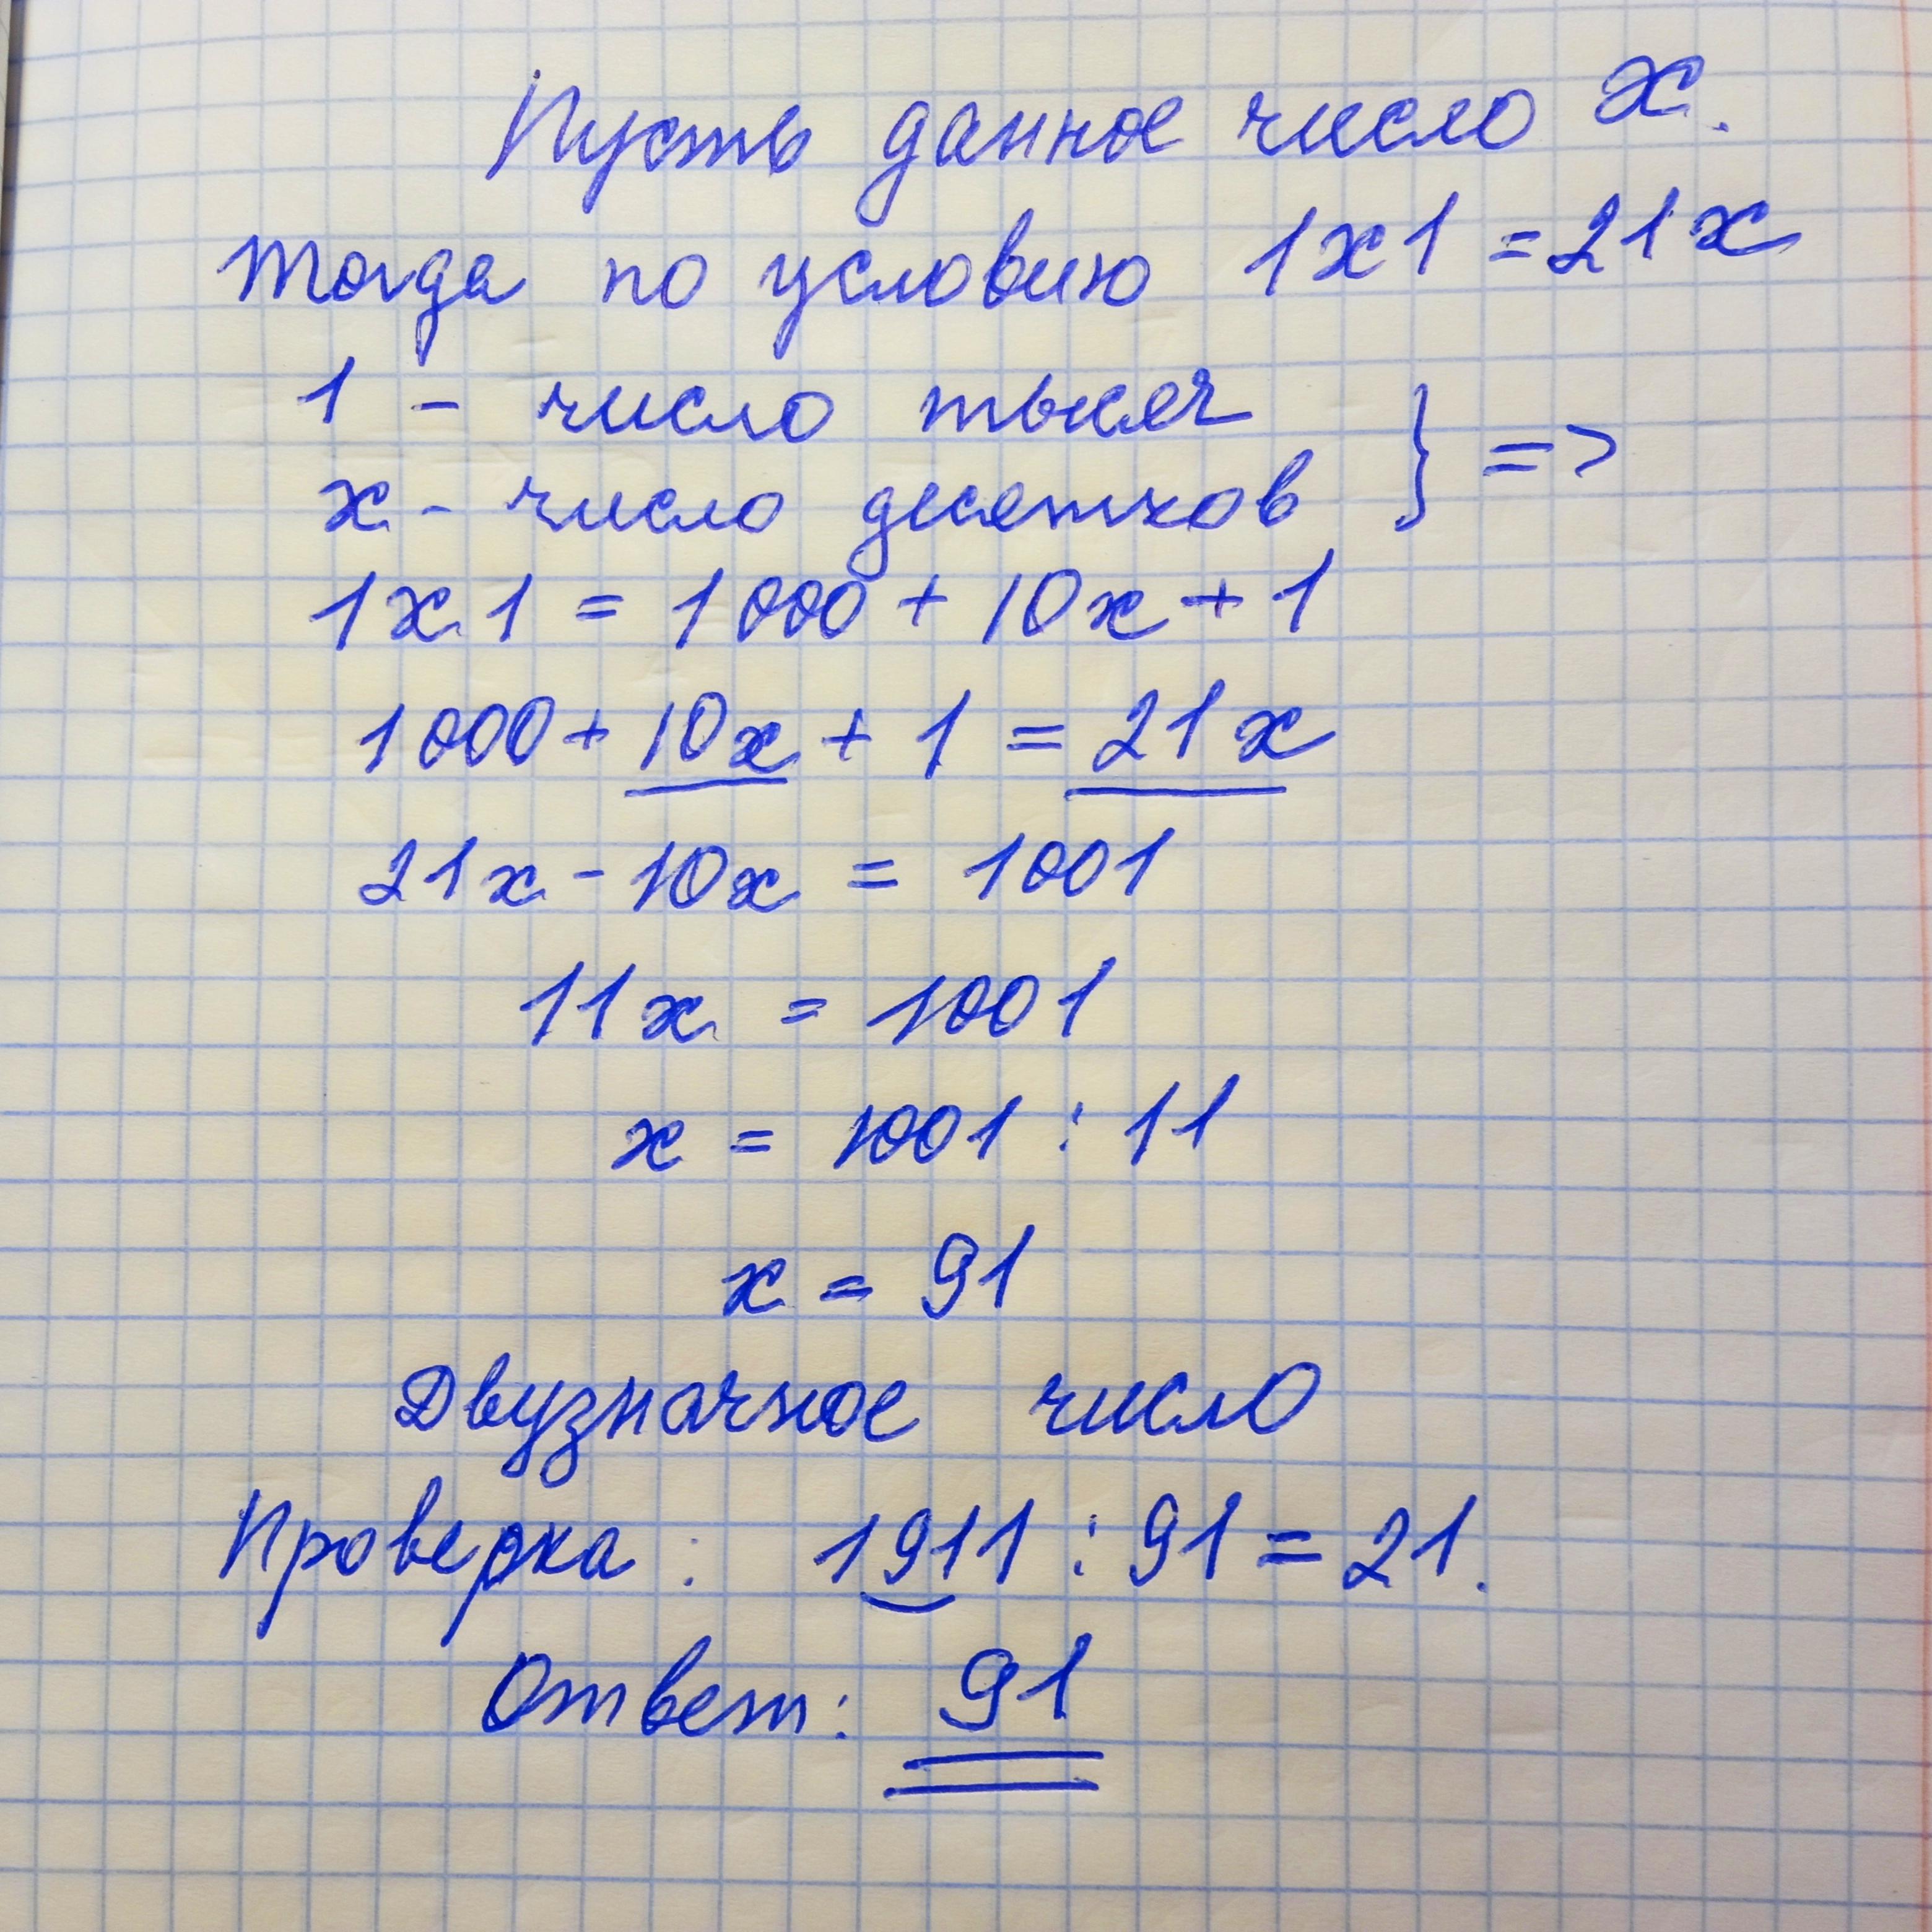 Пусть данное число x.
Тогда по условию 1x1 = 21x
1 - число тысяч
x - число десятков } =>
1x1 = 1000 + 10x + 1
1000 + 10x + 1 = 21x
21x - 10x = 1001
11x = 1001
x = 1001 : 11
x = 91
Двузначное число
Проверка: 1911 : 91 = 21.
Ответ: 91